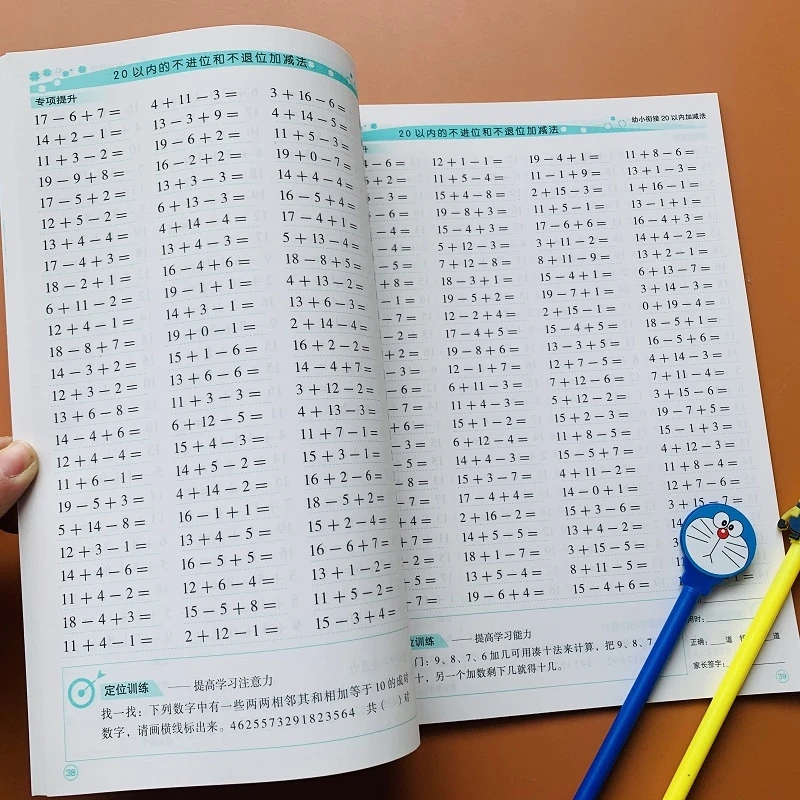 20以内的不进位和不退位加减法
专项提升
17－6＋7＝ 4＋11－3＝ 3＋16－6＝
14＋2－1＝ 13－3＋9＝ 4＋14－5＝
11＋3－2＝ 19－6＋2＝ 11＋5－3＝
19－9＋8＝ 16－2＋2＝ 19＋0－7＝
17－5＋2＝ 13＋3－3＝ 14＋4－4＝
12＋5－2＝ 6＋13－3＝ 16－5＋4＝
13＋4－4＝ 4＋14－4＝ 17－4＋1＝
17－4＋3＝ 13＋4－3＝ 5＋13－4＝
18－2＋1＝ 16－4＋6＝ 18－8＋5＝
6＋11－2＝ 19－1＋1＝ 4＋13－2＝
12＋4－1＝ 14＋3－1＝ 13＋6－3＝
18－8＋7＝ 19＋0－1＝ 2＋14－4＝
14－3＋2＝ 15＋1－6＝ 16＋2－2＝
12＋3－2＝ 13＋6－6＝ 14－4＋7＝
13＋6－8＝ 11＋3－3＝ 3＋12－2＝
14－4＋6＝ 6＋12－5＝ 4＋13－3＝
12＋4－4＝ 15＋4－3＝ 11＋7－1＝
11＋6－1＝ 14＋5－2＝ 15＋3－1＝
19－5＋3＝ 4＋14－2＝ 16＋2－6＝
5＋14－8＝ 16－1＋1＝ 18－5＋2＝
12＋3－1＝ 13＋4－5＝ 15＋2－4＝
14＋4－6＝ 16－5＋5＝ 16－6＋7＝
11＋4－2＝ 12＋6－4＝ 13＋1－2＝
18－4＋3＝ 15－5＋8＝ 11＋5－2＝
11＋4－1＝ 2＋12－1＝ 15－3＋4＝
定位训练 ——提高学习注意力
找一找：下列数字中有一些两两相邻其和相加等于10的成对
数字，请画横线标出来。4625573291823564 共（ ）对
38
幼小衔接 20以内加减法
20以内的不进位和不退位加减法
－6＝ 12＋1－1＝ 19－4＋1＝ 11＋8－6＝
6＋2＝ 11＋5－4＝ 11－1＋9＝ 13＋1－3＝
－3＝ 15＋4－8＝ 2＋15－3＝ 1＋16－1＝
－6＝ 19－8＋3＝ 11＋5－1＝ 13－1＋1＝
－4＝ 15－4＋3＝ 17－6＋6＝ 16－4＋3＝
－4＝ 5＋12－3＝ 3＋11－2＝ 14＋4－2＝
－5＝ 7＋12－8＝ 8＋11－9＝ 13＋2－1＝
18－3＋1＝ 15－4＋1＝ 6＋13－7＝
－1＝ 19－5＋2＝ 19－7＋1＝ 3＋14－3＝
12－2＋4＝ 2＋15－1＝ 0＋19－4＝
17－4＋5＝ 15－4＋5＝ 18－5＋1＝
＋2＝ 19－8＋6＝ 13－3＋5＝ 16－5＋6＝
12－1＋7＝ 12＋7－5＝ 4＋14－3＝
6＋11－3＝ 7＋12－6＝ 7＋11－4＝
－7＝ 11＋4－3＝ 5＋12－2＝ 3＋15－6＝
15＋1－2＝ 15＋2－3＝ 19－7＋5＝
6＋12－4＝ 11＋8－5＝ 15－1＋3＝
14＋4－3＝ 15－5＋7＝ 4＋12－3＝
15＋3－7＝ 4＋11－2＝ 11＋8－4＝
17－4＋4＝ 14－0＋1＝ 12＋7－6＝
＋4＝ 2＋16－2＝ 15＋3－6＝ 3＋15－7＝
14＋5－5＝ 13＋4－2＝ 14
18＋1－7＝ 3＋15－5＝
13＋5－4＝ 8＋11－5＝
－7＝ 19－6＋4＝ 15－4＋6＝
训练 ——提高学习能力
门：9、8、7、6加几可用凑十法来计算，把9、8、7
十，另一个加数剩下几就得十几。
用时：
正确：＿＿道 ＿＿道
家长签字：
39